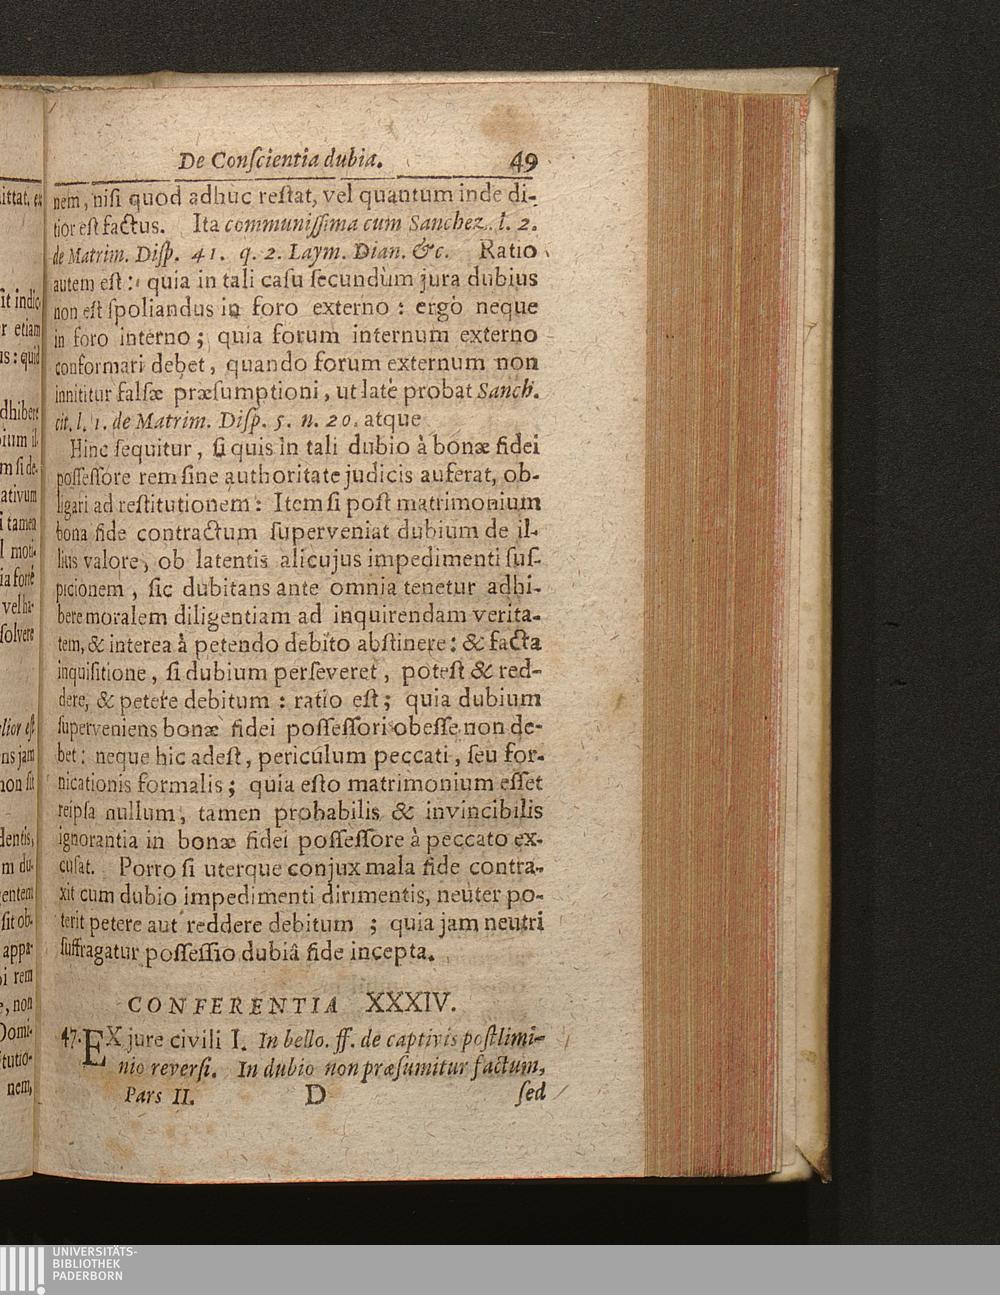 De Conſcientia dubia. 49
nem, niſi quod adhuc reſtat, vel quantum inde di-
tior eſt factus. Ita communiſſima cum Sanchez. l. 2.
de Matrim. Diſp. 41. q. 2. Laym. Dian. &c. Ratio
autem eſt: quia in tali caſu ſecundùm jura dubius
non eſt ſpoliandus in foro externo: ergò neque
in foro interno; quia forum internum externo
conformari debet, quando forum externum non
innititur falſæ præſumptioni, ut latè probat Sanch.
cit. l. 1. de Matrim. Diſp. 5. n. 20. atque
Hinc ſequitur, ſi quis in tali dubio à bonæ fidei
poſſeſſore rem ſine authoritate judicis auferat, ob-
ligari ad reſtitutionem: Item ſi poſt matrimonium
bona fide contractum ſuperveniat dubium de il-
lius valore, ob latentis alicujus impedimenti ſuſ-
picionem, ſic dubitans ante omnia tenetur adhi-
bere moralem diligentiam ad inquirendam verita-
tem, & interea à petendo debito abſtinere: & facta
inquiſitione, ſi dubium perſeveret, poteſt & red-
dere, & petere debitum: ratio eſt; quia dubium
ſuperveniens bonæ fidei poſſeſſori obeſſe non de-
bet: neque hic adeſt, periculum peccati, ſeu for-
nicationis formalis; quia eſto matrimonium eſſet
reipſa nullum, tamen probabilis & invincibilis
ignorantia in bonæ fidei poſſeſſore à peccato ex-
cuſat. Porro ſi uterque conjux mala fide contra-
xit cum dubio impedimenti dirimentis, neuter po-
terit petere aut reddere debitum; quia jam neutri
ſuffragatur poſſeſſio dubiâ fide incepta.
CONFERENTIA XXXIV.
47. EX jure civili I. In bello. ff. de captivis poſtlimi-
nio reverſi. In dubio non præſumitur factum,
Pars II. D ſed
UNIVERSITÄTS-
BIBLIOTHEK
PADERBORN